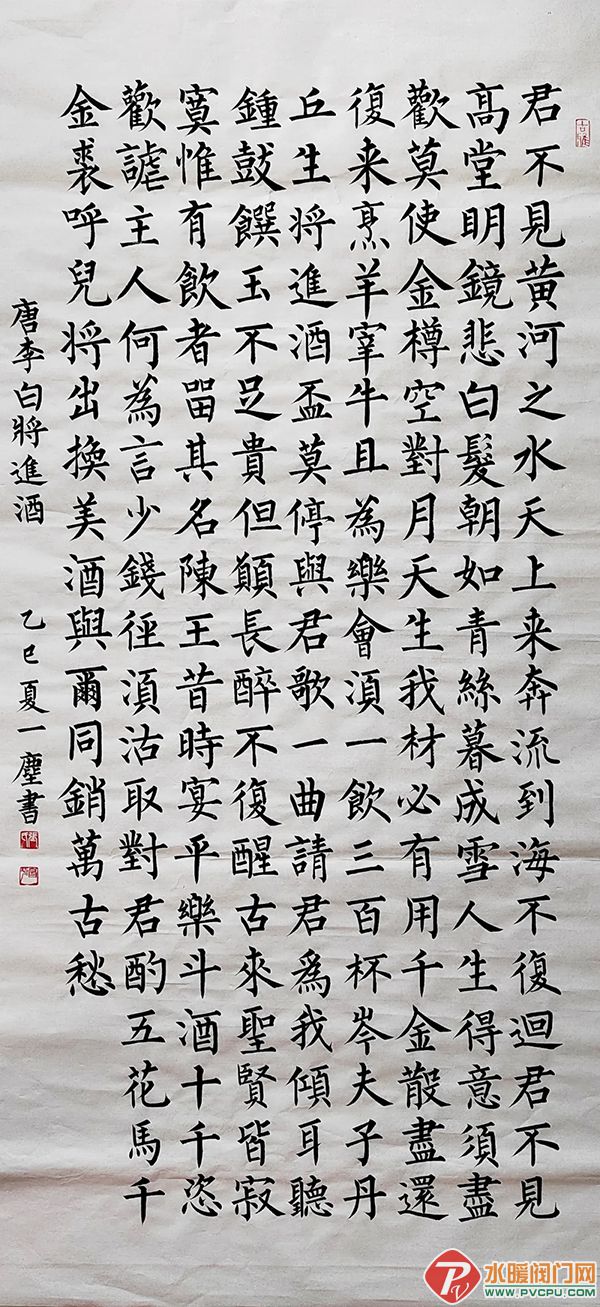 君不見黄河之水天上来奔流到海不復迴君不見
高堂明鏡悲白髮朝如青絲暮成雪人生得意須盡
歡莫使金樽空對月天生我材必有用千金散盡還
復来烹羊宰牛且為樂會須一飲三百杯岑夫子丹
丘生將進酒盃莫停與君歌一曲請君為我傾耳聽
鍾鼓饌玉不足貴但願長醉不復醒古來聖賢皆寂
寞惟有飲者留其名陳王昔時宴平樂斗酒十千恣
歡謔主人何為言少錢徑須沽取對君酌五花馬千
金裘呼兒將出換美酒與爾同銷萬古愁
唐李白將進酒 乙巳夏一塵書
水暖阀门网
WWW.PVCPU.COM